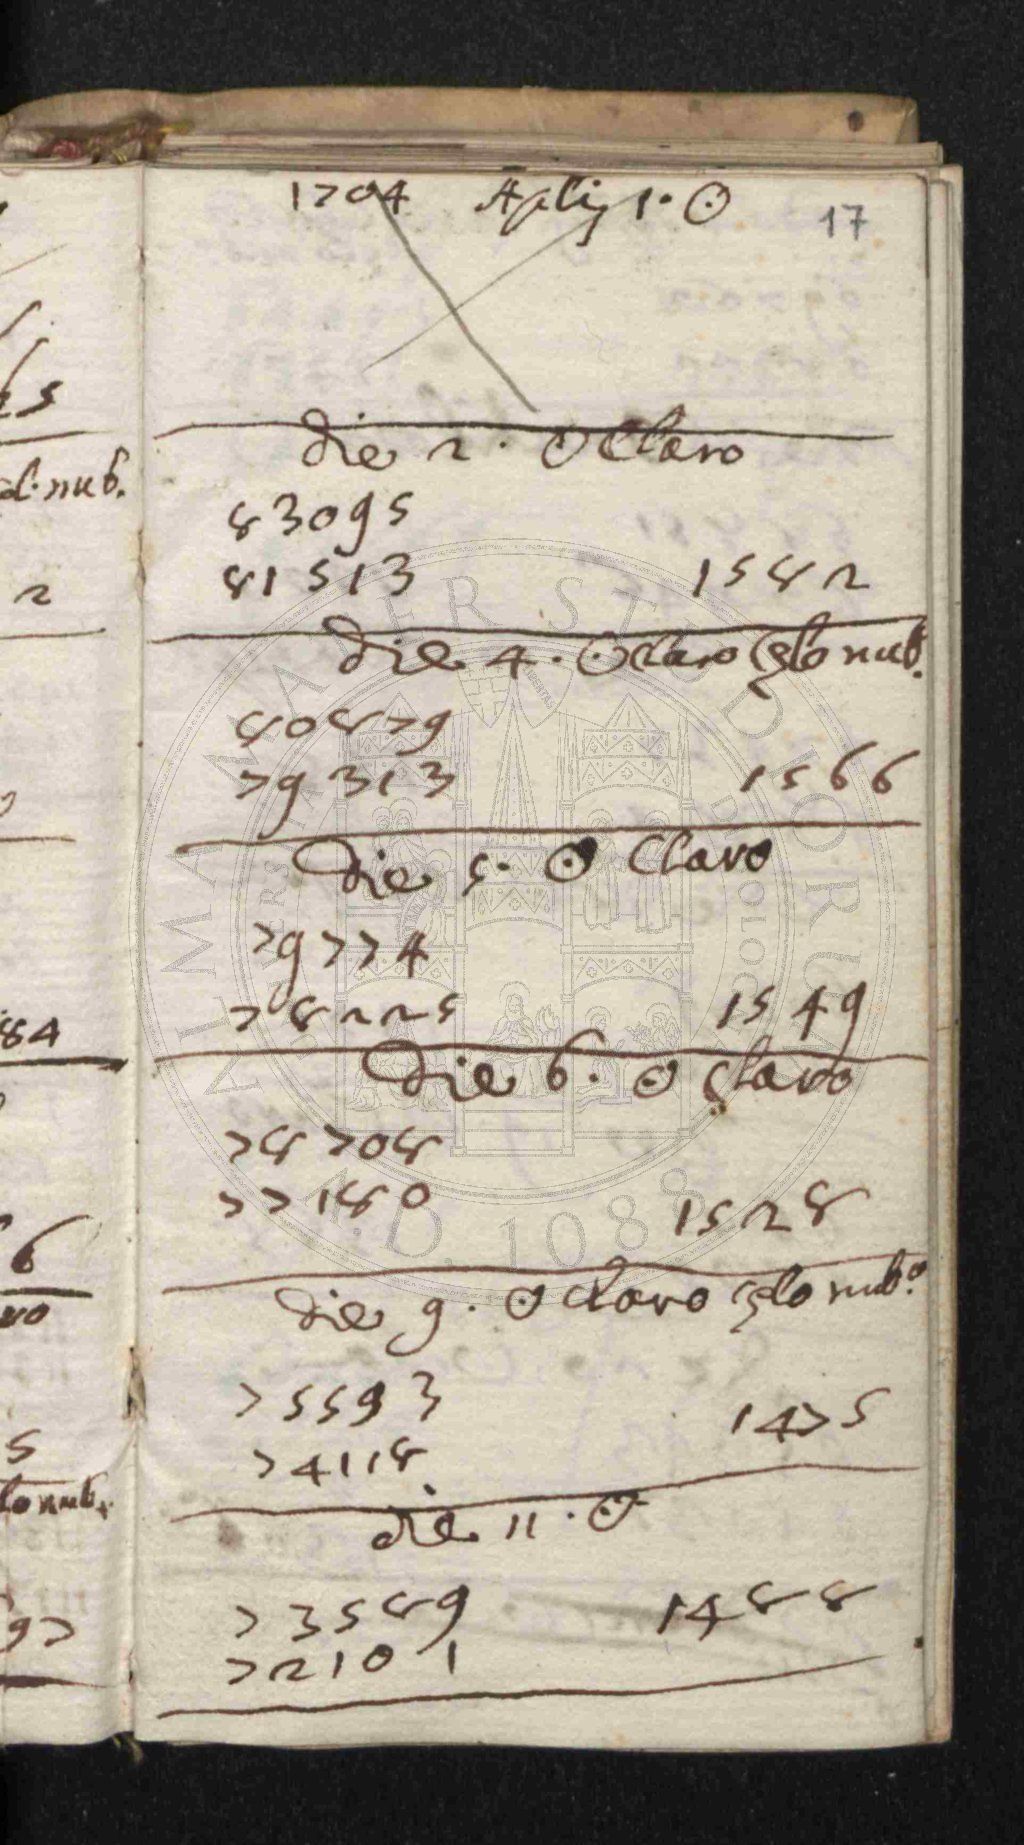 1704 Aplis 1. ☉
17
die 2. ☉ Claro
83095
81513 1582
die 4. ☉ claro cęlo nub.
80879
79313 1566
die 5. ☉ Claro
79774
78225 1549
die 6. ☉ claro
78708
77180 1528
die 9. ☉ claro cęlo nub.o
75593 1475
74118
die 11. ☉
73589 1488
72101
ALMA MATER STUDIORUM
A.D. 1088